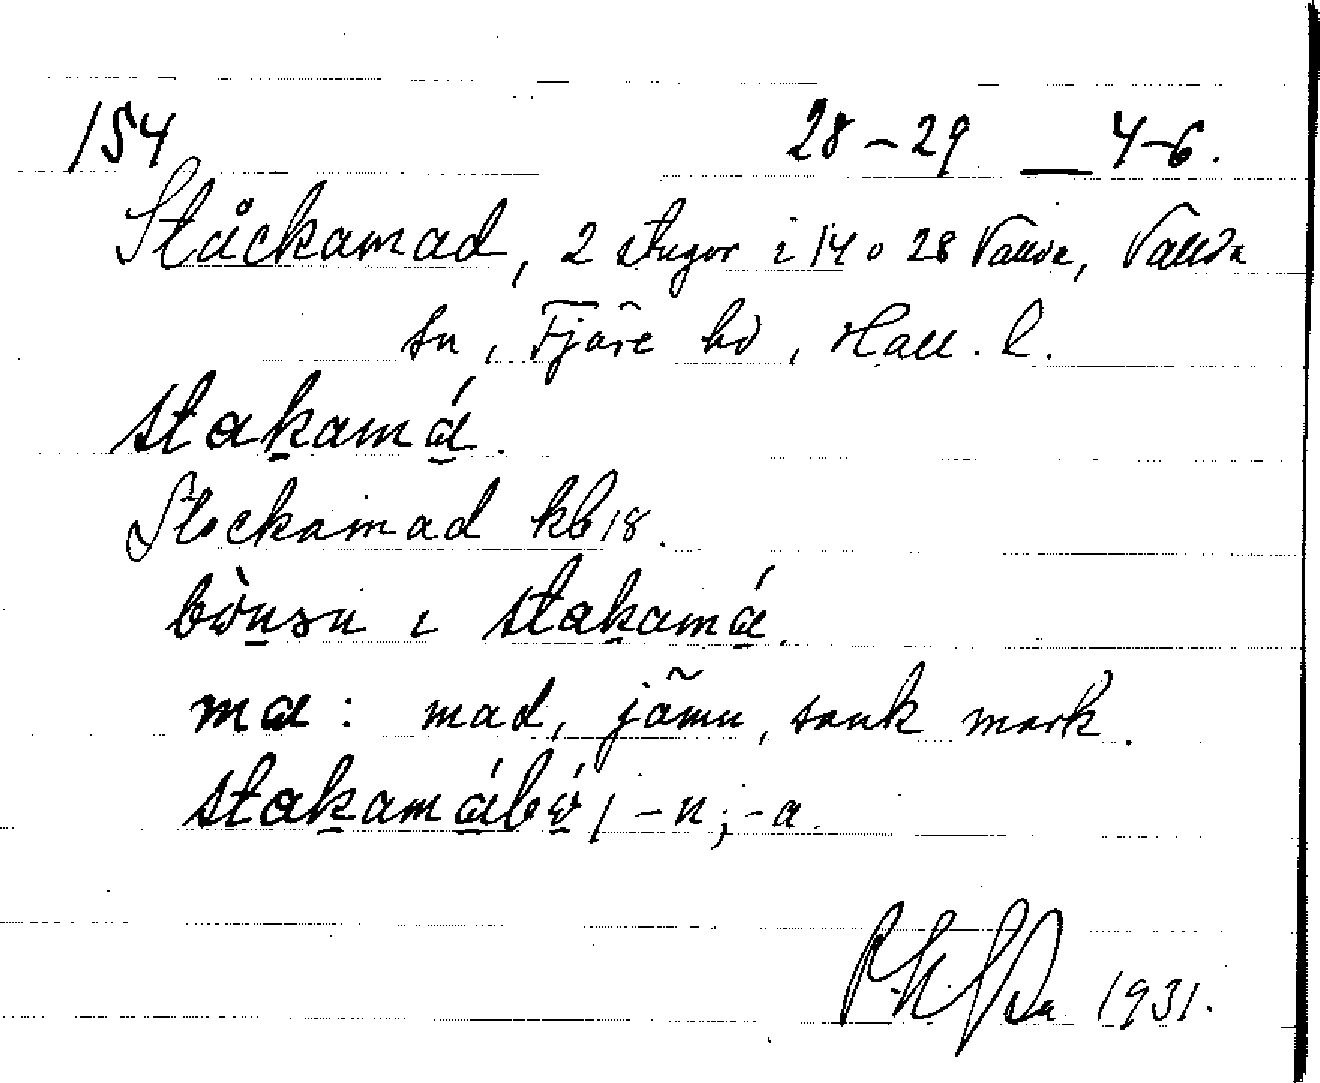 154 28–29 — 4–6.
Ståckamad, 2 stugor i 14 o 28 Vallda, Vallda
sn, Fjäre hd, Hall. l.
stakamá.
Stockamad kb 18.
i stakamá.
ma: mad, jämn, sank mark.
stakamá -n; -a.
1931.